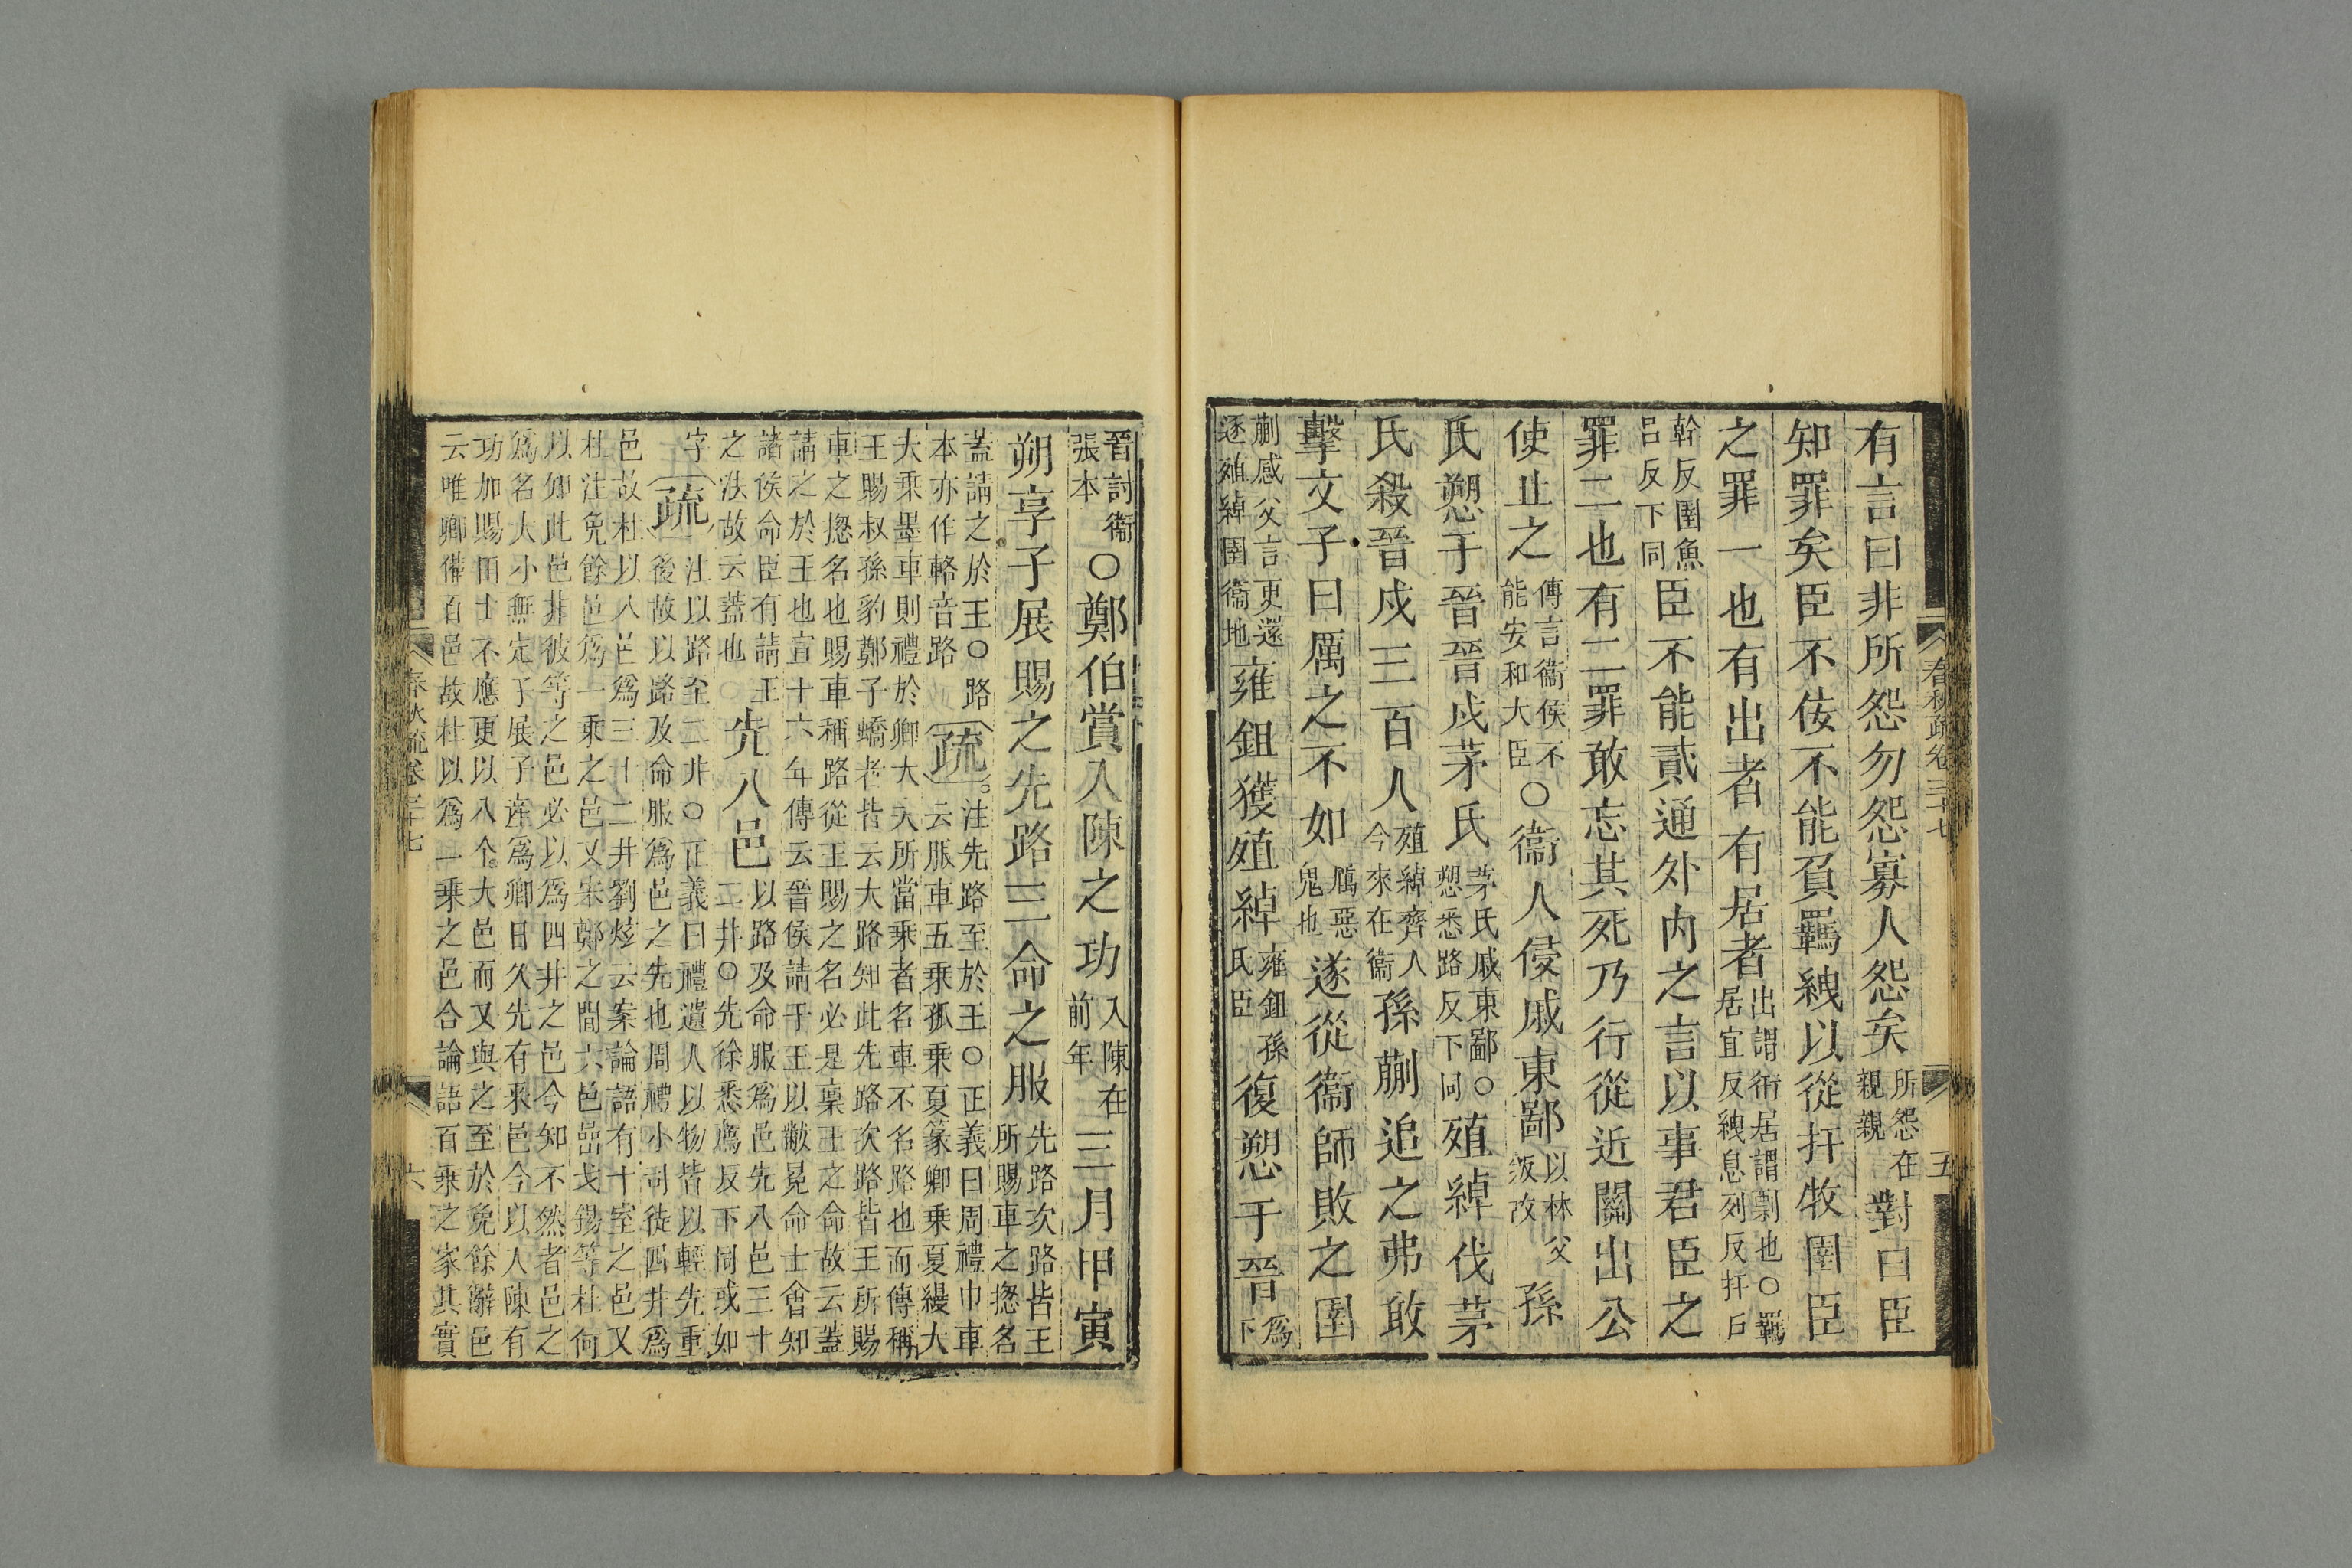 春秋疏卷三十七 五
有言曰非所怨勿怨寡人怨矣所怨在親親對曰臣
知罪矣臣不佞不能負羈絏以從扞牧圉臣
之罪一也有出者有居者出謂衎居謂剽也○羈居宜反絏息列反扞戶
幹反圉魚呂反下同臣不能貳通外内之言以事君臣之
罪二也有二罪敢忘其死乃行從近關出公
使止之傳言衞侯不能安和大臣○衞人侵戚東鄙以林父叛故孫
氏愬于晉晉戍茅氏茅氏戚東鄙○愬悉路反下同殖綽伐茅
氏殺晉戍三百人殖綽齊人今來在衞孫蒯追之弗敢
擊文子曰厲之不如厲惡鬼也遂從衞師敗之圉
蒯感父言更還逐殖綽圉衞地雍鉏獲殖綽雍鉏孫氏臣復愬于晉爲下
晉討衞張本○鄭伯賞入陳之功入陳在前年三月甲寅
朔享子展賜之先路三命之服先路次路皆王所賜車之揔名
蓋請之於王○路本亦作輅音路疏注先路至於王○正義曰周禮巾車云服車五乘孤乘夏篆卿乘夏縵大
夫乘墨車則禮於卿大夫所當乘者名車不名路也而傳稱
王賜叔孫豹鄭子蟜者皆云大路知此先路次路皆王所賜
車之揔名也賜車稱路從王賜之名必是稟王之命故云蓋
請之於王也宣十六年傳云晉侯請于王以黻冕命士會知
諸侯命臣有請王之法故云蓋也先八邑以路及命服爲邑先八邑三十二井○先徐悉薦反下同或如
字疏注以路至二井○正義曰禮遺人以物皆以輕先重後故以路及命服爲邑之先也周禮小司徒四井爲
邑故杜以八邑爲三十二井劉炫云案論語有十室之邑又
杜注免餘邑爲一乘之邑又宋鄭之間六邑嵒戈錫等杜何
以知此邑非彼等之邑必以爲四井之邑今知不然者邑之
爲名大小無定子展子產爲卿日久先有采邑今以入陳有
功加賜田土不應更以八个大邑而又與之至於免餘辭邑
云唯卿備百邑故杜以爲一乘之邑合論語百乘之家其實
春秋疏卷三十七 六